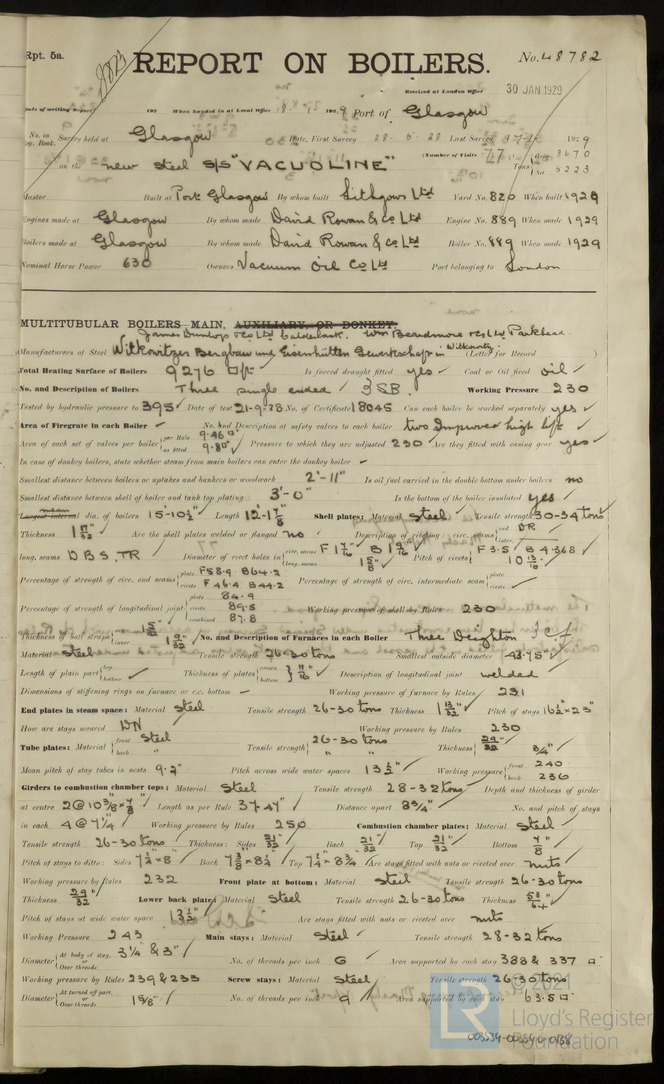 Rpt. 5a.
REPORT ON BOILERS.
No. 48782
Received at London Office 30 JAN 1929
Date of writing Report 192 When handed in at Local Office 19 Port of Glasgow
No. in Reg. Book. Survey held at Glasgow Date, First Survey 28-6-28 Last Survey 1929
on the new steel S/S "VACUOLINE" (Number of Visits 77) Tons Gross 8670 Net 5223
Master Built at Port Glasgow By whom built Lithgows Ltd Yard No. 820 When built 1929
Engines made at Glasgow By whom made David Rowan & Co Ltd Engine No. 889 When made 1929
Boilers made at Glasgow By whom made David Rowan & Co Ltd Boiler No. 889 When made 1929
Nominal Horse Power 630 Owners Vacuum Oil Co Ltd Port belonging to London
MULTITUBULAR BOILERS MAIN, AUXILIARY, OR DONKEY.
James Dunlop & Co Ltd Calderbank. Wm Beardmore & Co Ltd Parkhead.
Manufacturers of Steel Witkowitzer Bergbau und Eisenhütten Gewerkschaft in Witkowitz (Letter for Record )
Total Heating Surface of Boilers 9276 □ft Is forced draught fitted yes Coal or Oil fired oil
No. and Description of Boilers Three single ended 3SB. Working Pressure 230
Tested by hydraulic pressure to 395 Date of test 21-9-28 No. of Certificate 18045 Can each boiler be worked separately yes
Area of Firegrate in each Boiler No. and Description of safety valves to each boiler two Improved high lift
Area of each set of valves per boiler per Rule 9.46□" as fitted 9.80□" Pressure to which they are adjusted 230 Are they fitted with easing gear yes
In case of donkey boilers, state whether steam from main boilers can enter the donkey boiler
Smallest distance between boilers or uptakes and bunkers or woodwork 2'-11" Is oil fuel carried in the double bottom under boilers no
Smallest distance between shell of boiler and tank top plating 3'-0" Is the bottom of the boiler insulated yes
Largest internal mean dia. of boilers 15'-10½" Length 12'-1⅞" Shell plates: Material Steel Tensile strength 30-34 tons
Thickness Are the shell plates welded or flanged no Description of riveting: circ. seams end DR
long. seams DBS. TR Diameter of rivet holes in circ. seams F 1 7/16 B 1 9/16 long. seams 1⅝" Pitch of rivets F 3.5 B 4.368 10 13/16
Percentage of strength of circ. end seams plate F 58.9 B 64.2 rivets F 46.4 B 44.2 Percentage of strength of circ. intermediate seam plate rivets
Percentage of strength of longitudinal joint plate 84.9 rivets 89.5 combined 87.8 Working pressure of shell by Rules 230
Thickness of butt straps outer inner No. and Description of Furnaces in each Boiler Three Deighton 3 c.f
Material Steel Tensile strength 26-30 tons Smallest outside diameter 43.75"
Length of plain part top bottom Thickness of plates crown bottom 11/16" Description of longitudinal joint welded
Dimensions of stiffening rings on furnace or c.c. bottom Working pressure of furnace by Rules 231
End plates in steam space: Material Steel Tensile strength 26-30 tons Thickness 1 13/32" Pitch of stays 16½" x 23"
How are stays secured DN Working pressure by Rules 230
Tube plates: Material front Steel back " Tensile strength 26-30 tons " " Thickness 29/32 3/4"
Mean pitch of stay tubes in nests 9.2" Pitch across wide water spaces 13½" Working pressure front 240 back 236
Girders to combustion chamber tops: Material Steel Tensile strength 28-32 tons Depth and thickness of girder
at centre 2 @ 10⅜ x ⅞" Length as per Rule 37.47" Distance apart 8¾" No. and pitch of stays
in each 4 @ 7¼" Working pressure by Rules 250 Combustion chamber plates: Material Steel
Tensile strength 26-30 tons Thickness: Sides 21/32 Back 21/32 Top 21/32 Bottom ⅞
Pitch of stays to ditto: Sides 7¼" x 8" Back 7⅜ x 8¼ Top 7¼ x 8¾ Are stays fitted with nuts or riveted over nuts
Working pressure by Rules 232 Front plate at bottom: Material Steel Tensile strength 26-30 tons
Thickness 29/32 Lower back plate: Material Steel Tensile strength 26-30 tons Thickness 53/64
Pitch of stays at wide water space 13½" Are stays fitted with nuts or riveted over nuts
Working Pressure 243 Main stays: Material Steel Tensile strength 28-32 tons
Diameter At body of stay, or Over threads 3¼ & 3" No. of threads per inch 6 Area supported by each stay 388 & 337 □"
Working pressure by Rules 239 & 233 Screw stays: Material Steel Tensile strength 26-30 tons
Diameter At turned off part, or Over threads 1⅝" No. of threads per inch 9 Area supported by each stay 63.5□"
© 2021
LR
Lloyd's Register
Foundation
003534-003540-0158